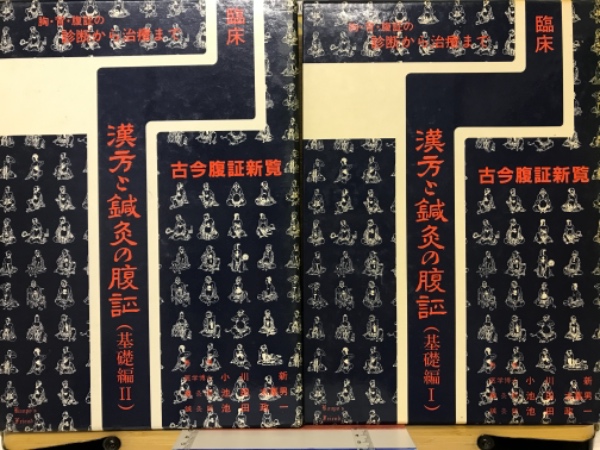 臨床
胸・背・腹証の
診断から治療まで
漢方と鍼灸の腹証
(基礎編II)
古今腹証新覧
医学博
小川新
池田
池田政一
臨床
胸・背・腹証の
診断から治療まで
漢方と鍼灸の腹証
(基礎編I)
古今腹証新覧
医学博
小川新
池田
池田政一